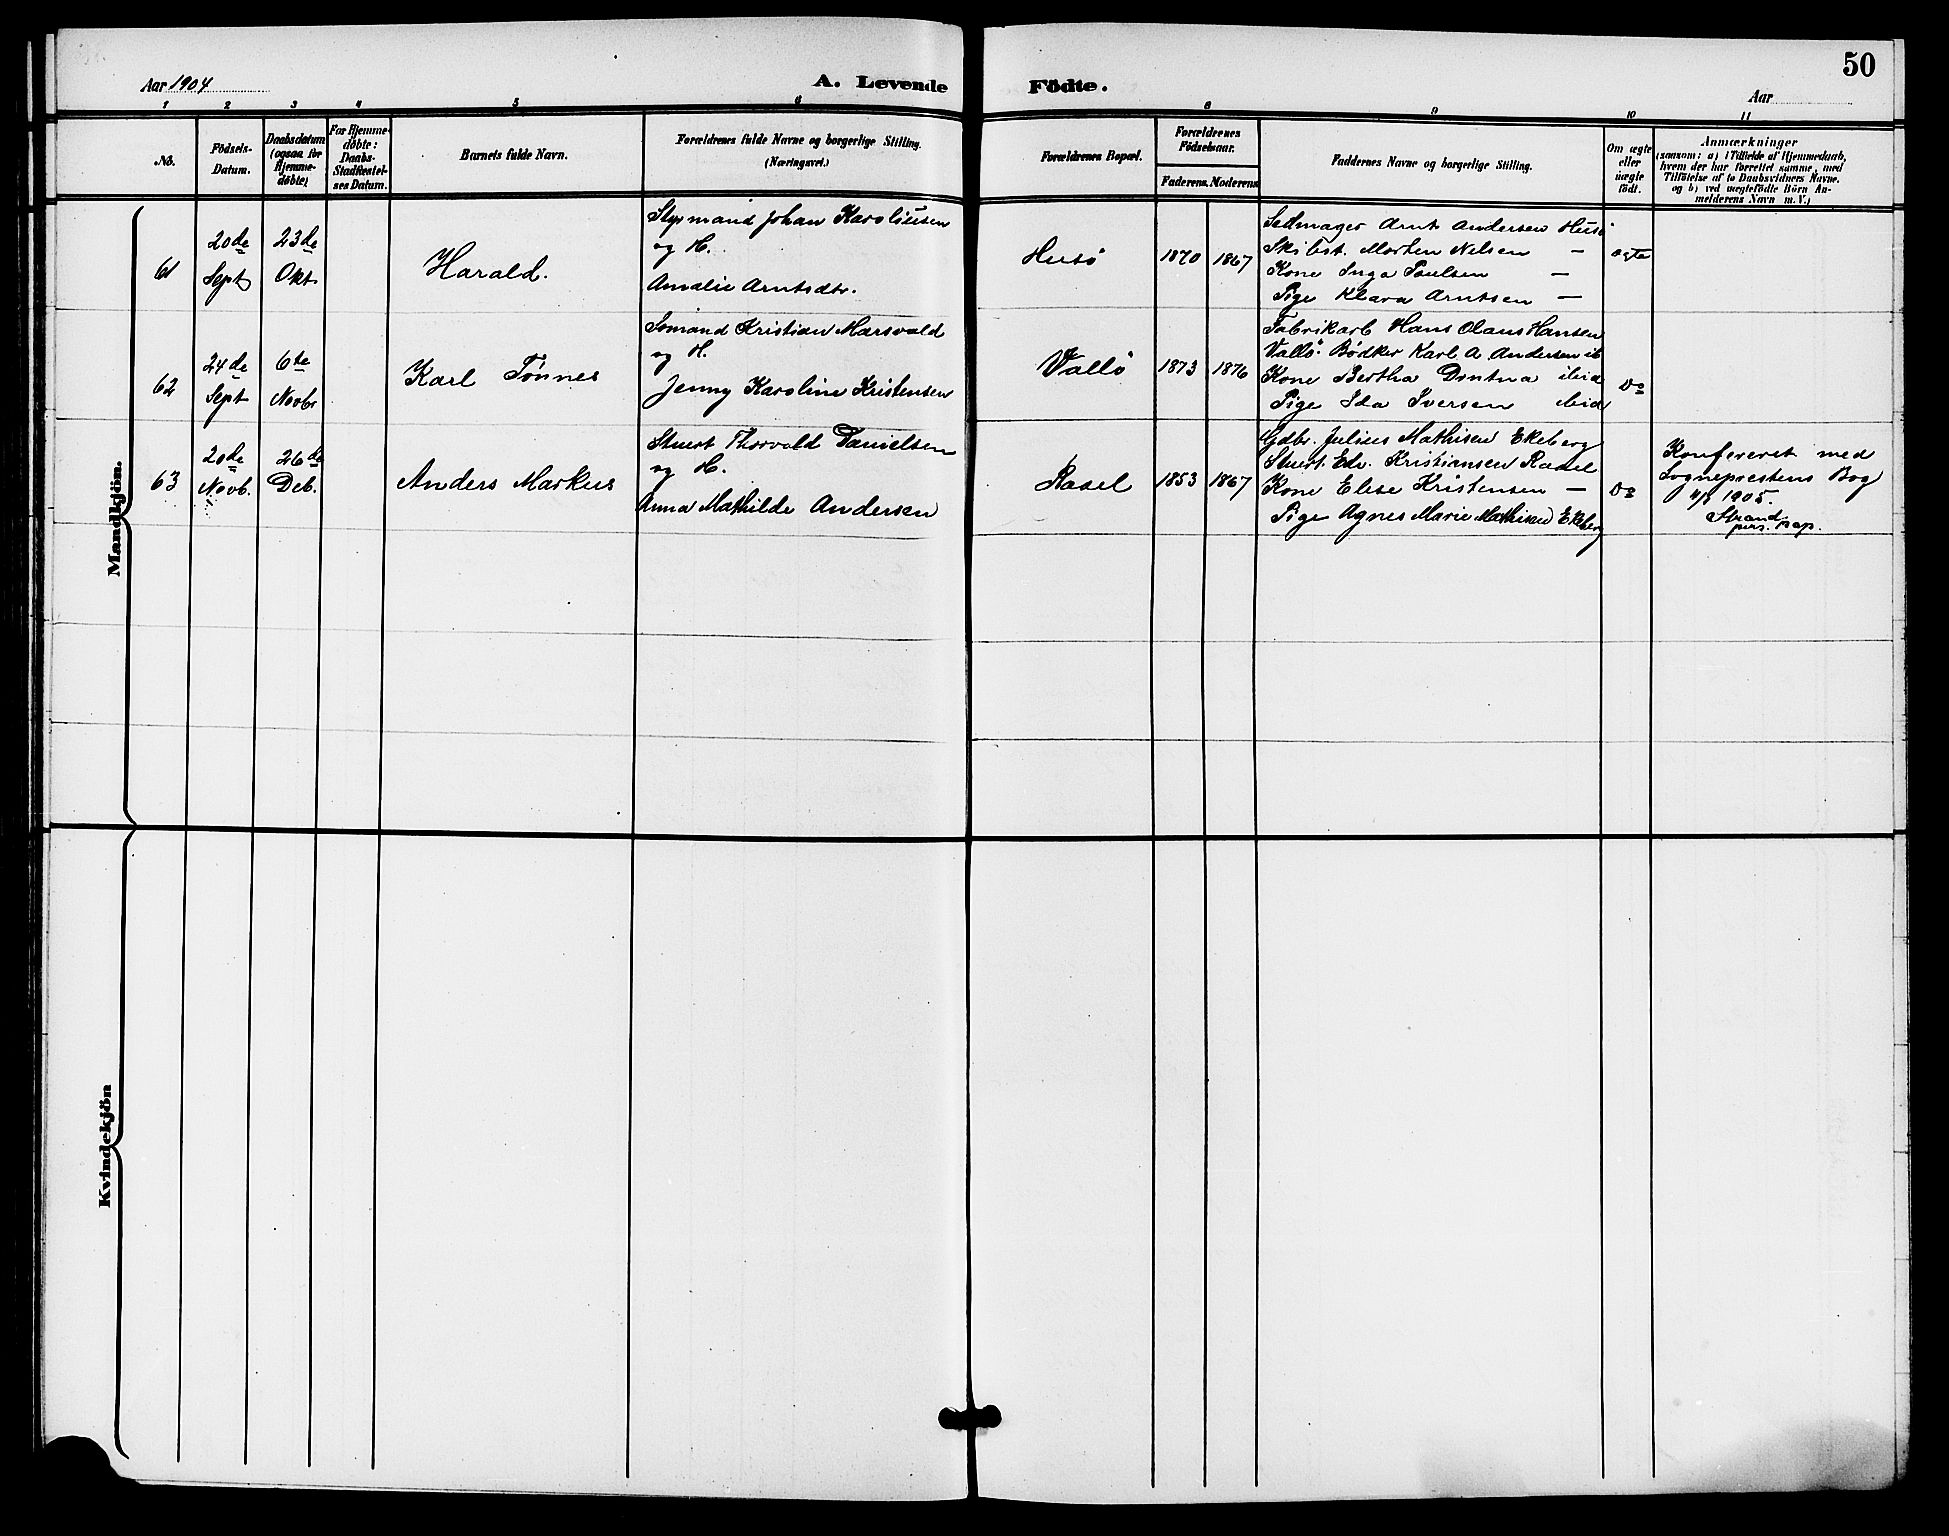 50
Aar 1904
A. Levende Födte.
Aar
1 2 3 4 5 6 8 9 10 11
No.
Födsels-Datum.
Daabsdatum (ogsaa for Hjemmedöbte)
For Hjemmedöbte: Daabs-Stadfestelses Datum.
Barnets fulde Navn.
Forældrenes fulde Navne og borgerlige Stilling.
(Næringsvei.)
Forældrenes Bopæl.
Forældrenes Födselsaar.
Faderens. Moderens
Faddernes Navne og borgerlige Stilling.
Om ægte eller uægte födt.
Anmærkninger
(saasom: a) i Tilfælde af Hjemmedaab,
hvem der har forrettet samme, med
Tilföielse af to Daabsvidners Navne.
og b) ved uægtefödte Börn An-
melderens Navn m. V.)
Mandkjön.
61
20de Sept
23de Okt
Harald.
Styrmand Johan Karoliusen
og H.
Amalie Arntsdtr.
Husö
1870
1867
Sedmager Arnt Andersen Husö
Skibst. Morten Nilsen —
Kone Inga Paulsen —
Pige Klara Arntsen —
ægte
62
24de Sept
6te Novbr
Karl Tönnes
Sömand Kristian Marsvold
og H.
Jenny Karoline Kristensen
Vallö
1873
1876
Fabrikarb Hans Olaus Hansen
Vallö. Bödker Karl A. Andersen ib
Kone Bertha ibid
Pige Ida Iversen ibid
Do
63
20de Novb.
26de Deb.
Anders Markus
Stuert Thorvald Danielsen
og H.
Anna Mathilde Andersen
Rasel
1853
1867
Gdbr. Julius Mathisen Ekeberg
Stuert. Edv. Kristiansen Rasel
Kone Elise Kristensen —
Pige Agnes Marie Mathisen Ekeberg
Do
Konfereret med
Sogneprestens Bog
1905.
Strand
pers. kap.
Kvindekjön